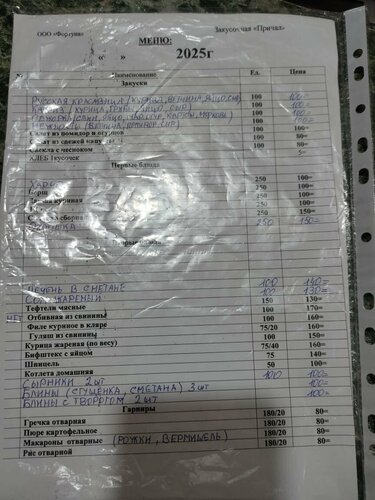 ООО «Фортуна» Закусочная «Причал»
МЕНЮ:
« » 2025г
№ Наименование Ед. Цена
Закуски
РУССКАЯ КРАСАВИЦА (КУРИЦА, ВЕТЧИНА, ЯЙЦО, СЫР) 100 100=
(КУРИЦА, ГРИБЫ, ЯЙЦО, СЫР) 100 100=
100 100=
(ВЕТЧИНА, СЫР) 100 100=
Салат из помидор и огурцов 100 100=
Салат из свежей капусты 100 80=
Свекла с чесноком 100 80=
ХЛЕБ 1кусочек 5=
Первые блюда
ХАРЧО 250 100=
Борщ 250 100=
куриная 250 100=
сборная 250 150=
ОКРОШКА 250 130=
блюда
ПЕЧЕНЬ В СМЕТАНЕ 100 140=
100 130=
Тефтели мясные 150 130=
Отбивная из свинины 100 170=
Филе куриное в кляре 100 160=
Гуляш из свинины 75/20 160=
Курица жареная (по весу) 100 150=
Бифштекс с яйцом 75/40 160=
Шницель 75 140=
Котлета домашняя 50 100=
СЫРНИКИ 2 шт 100 100=
БЛИНЫ (СГУЩЕНКА, СМЕТАНА) 3 шт 100=
БЛИНЫ С ТВОРОГОМ 2 шт 100=
Гарниры
Гречка отварная 180/20 80=
Пюре картофельное 180/20 80=
Макароны отварные (РОЖКИ, ВЕРМИШЕЛЬ) 180/20 80=
Рис отварной 180/20 80=